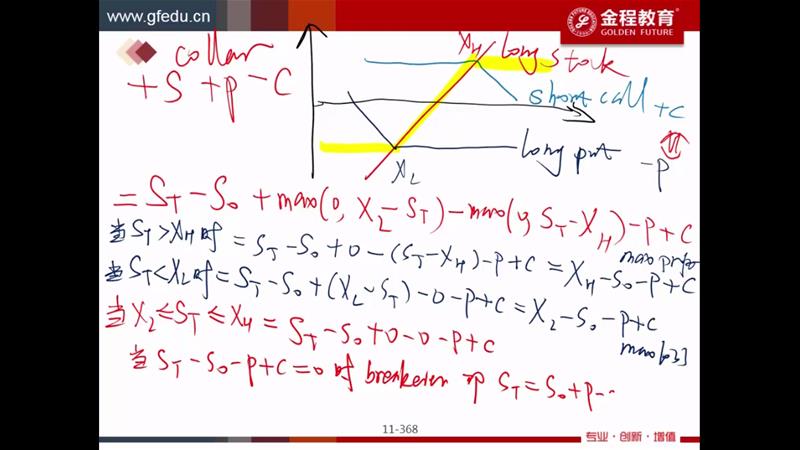 www.gfedu.cn
金程教育
GOLDEN FUTURE
collar
+S +p -C
X_H long stock
short call +C
long put -P
X_L
= S_T - S_0 + max(0, X_L - S_T) - max(0, S_T - X_H) - P + C
当 S_T > X_H 时 = S_T - S_0 + 0 - (S_T - X_H) - P + C = X_H - S_0 - P + C
max profit
当 S_T < X_L 时 = S_T - S_0 + (X_L - S_T) - 0 - P + C = X_L - S_0 - P + C
当 X_L ≤ S_T ≤ X_H = S_T - S_0 + 0 - 0 - P + C
max
当 S_T - S_0 - P + C = 0 时 breakeven 即 S_T = S_0 + P -
11-368
专业·创新·增值